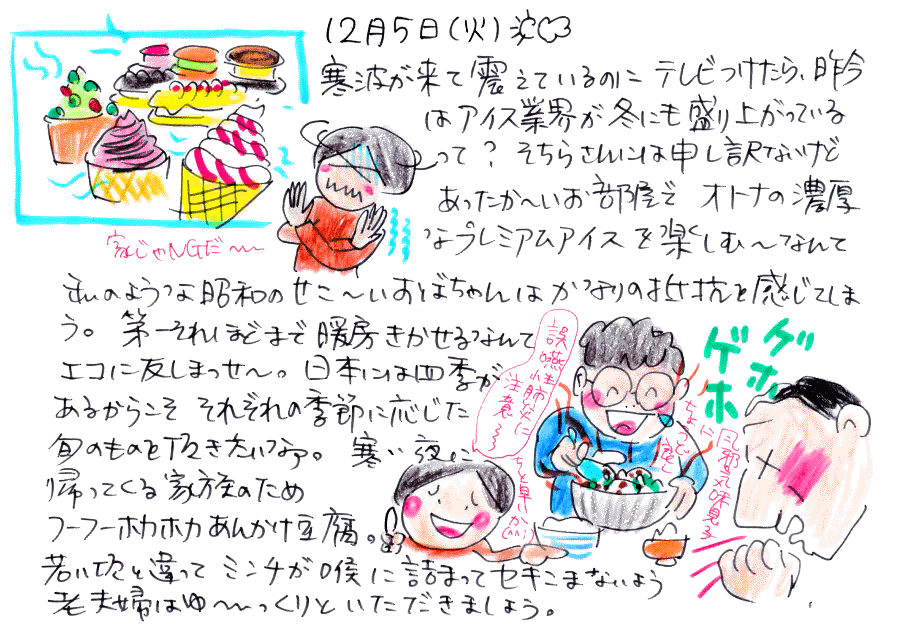 12月5日(火)
寒波が来て震えているのに テレビつけたら、昨今
はアイス業界が冬にも盛り上がっている
って？そちらさんには申し訳ないけど
あったか〜いお部屋で オトナの濃厚
なプレミアムアイスを楽しむ〜なんて
家じゃNGだ〜〜
私のような昭和のせこ〜いおばちゃんはかなりの抵抗を感じてしま
う。第一それほどまで暖房きかせるなんて
エコに反しまっせ〜。日本には四季が
あるからこそ それぞれの季節に応じた
旬のものを頂きたいなァ。寒い夜に
帰ってくる家族のため
フーフーホカホカあんかけ豆腐。
若い頃と違って ミンチが喉に詰まってセキこまないよう
老夫婦はゆ〜〜っくりといただきましょう。
誤嚥性肺炎に
注意〜〜
ちと早いか
ゲホ
ゲホ
風邪気味